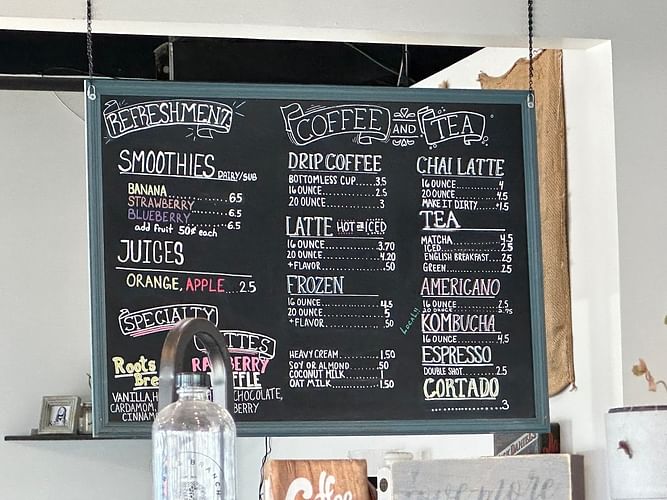 REFRESHMENT
SMOOTHIES DAIRY/SUB
BANANA..........65
STRAWBERRY..........6.5
BLUEBERRY..........6.5
add fruit 50¢ each
JUICES
ORANGE, APPLE...2.5
SPECIALTY
LATTES
Roots
RASPBERRY
VANILLA,
CHOCOLATE,
CARDAMOM,
COFFEE AND TEA
DRIP COFFEE
BOTTOMLESS CUP....3.5
16 OUNCE..........2.5
20 OUNCE..........3
LATTE HOT OR ICED
16 OUNCE..........3.70
20 OUNCE..........4.20
+FLAVOR..........50
FROZEN
16 OUNCE..........4.5
20 OUNCE..........5
+FLAVOR..........50
HEAVY CREAM..........1.50
SOY OR ALMOND..........50
COCONUT MILK..........1
OAT MILK..........1.50
CHAI LATTE
16 OUNCE..........4
20 OUNCE..........4.5
MAKE IT DIRTY....+1.5
TEA
MATCHA..........4.5
ICED..........2.5
ENGLISH BREAKFAST...2.5
GREEN..........2.5
AMERICANO
16 OUNCE..........2.5
20 OUNCE..........2.75
LOCAL!!
KOMBUCHA
16 OUNCE..........4.5
ESPRESSO
DOUBLE SHOT..........2.5
CORTADO
..........3
Coffee
love more